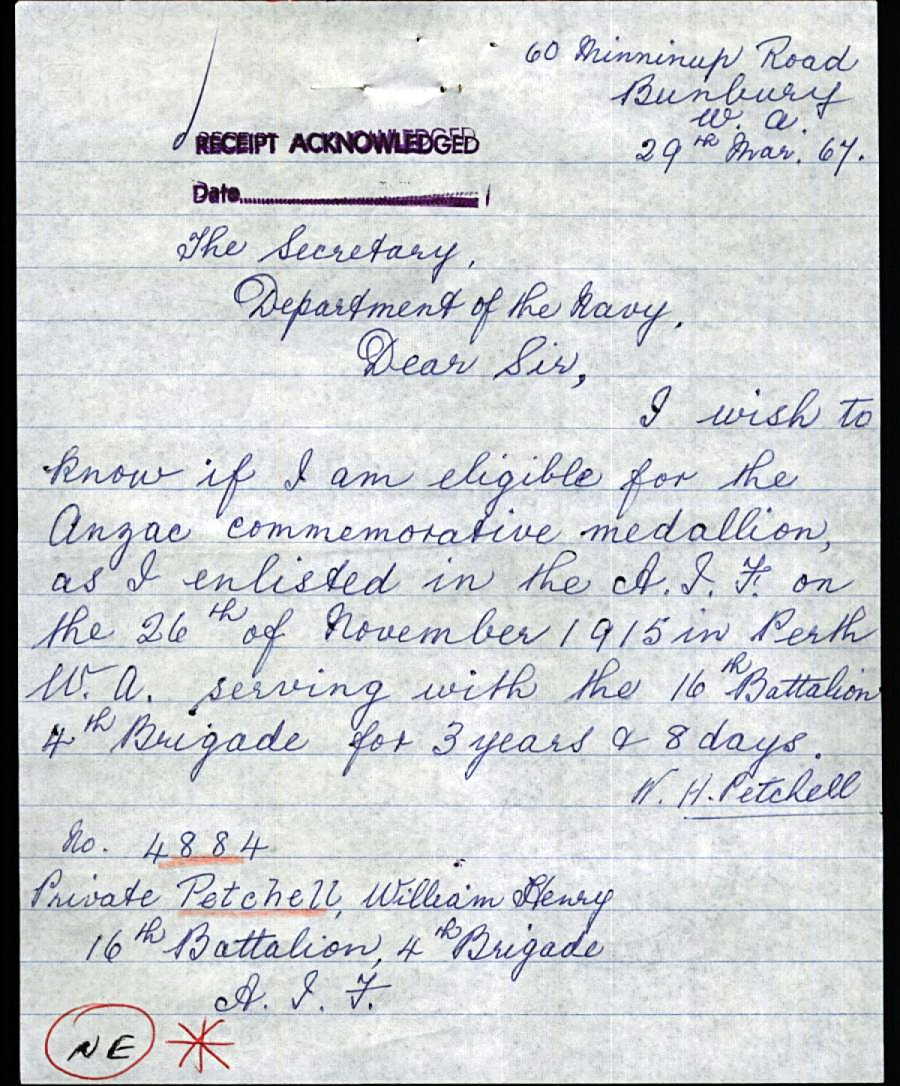 60 Minninup Road
Bunbury
W. A.
29th Mar. 67.
RECEIPT ACKNOWLEDGED
Date
The Secretary,
Department of the Navy,
Dear Sir,
I wish to
know if I am eligible for the
Anzac commemorative medallion,
as I enlisted in the A. I. F. on
the 26th of November 1915 in Perth
W. A. serving with the 16th Battalion
4th Brigade for 3 years & 8 days.
W. H. Petchell
No. 4884
Private Petchell, William Henry
16th Battalion, 4th Brigade
A. I. F.
NE *